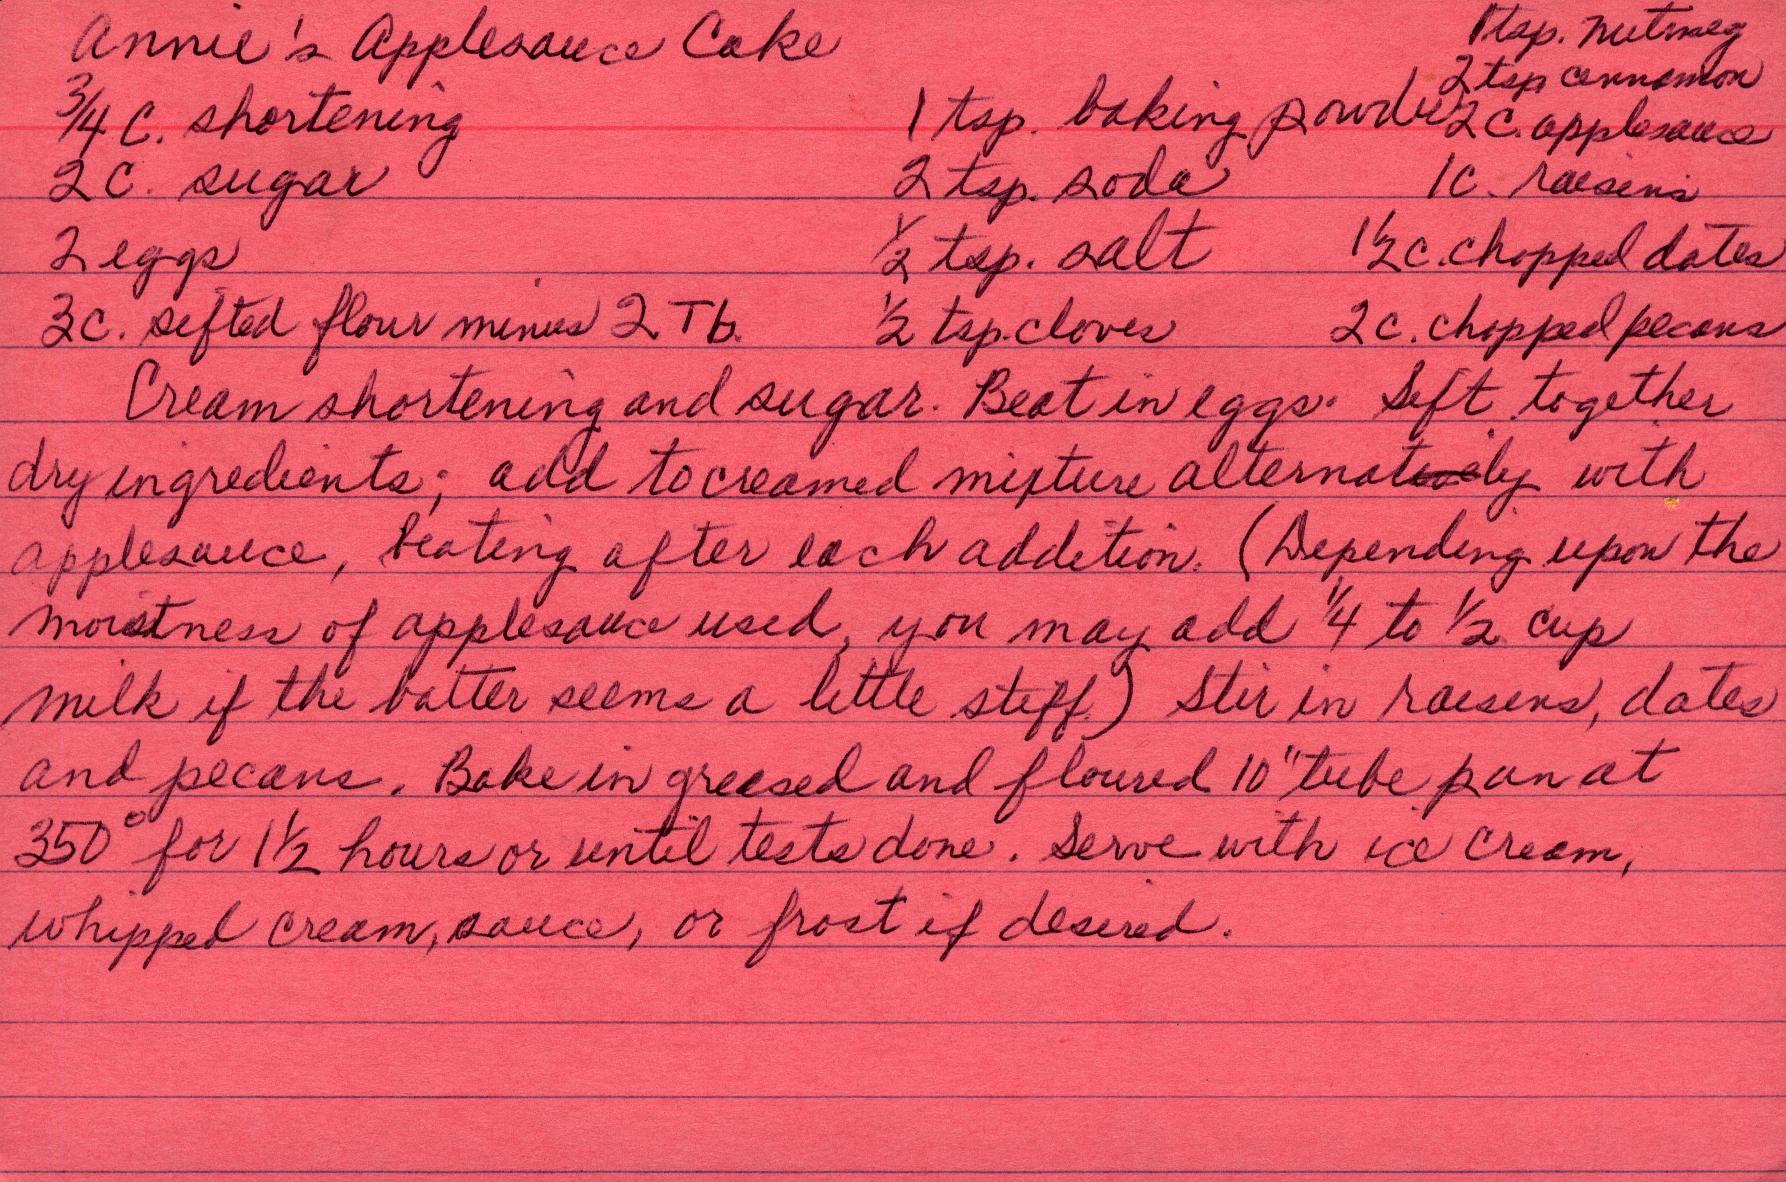 Annie's Applesauce Cake
1 tsp. nutmeg
2 tsp cinnamon
3/4 C. shortening 1 tsp. baking powder 2 C. applesauce
2 C. sugar 2 tsp. soda 1 C. raisins
2 eggs 1/2 tsp. salt 1 1/2 C. chopped dates
3 C. sifted flour minus 2 Tb. 1/2 tsp. cloves 2 C. chopped pecans
Cream shortening and sugar. Beat in eggs. Sift together
dry ingredients; add to creamed mixture alternately with
applesauce, beating after each addition. (Depending upon the
moistness of applesauce used, you may add 1/4 to 1/2 cup
milk if the batter seems a little stiff.) Stir in raisins, dates
and pecans. Bake in greased and floured 10" tube pan at
350° for 1 1/2 hours or until tests done. Serve with ice cream,
whipped cream, sauce, or frost if desired.